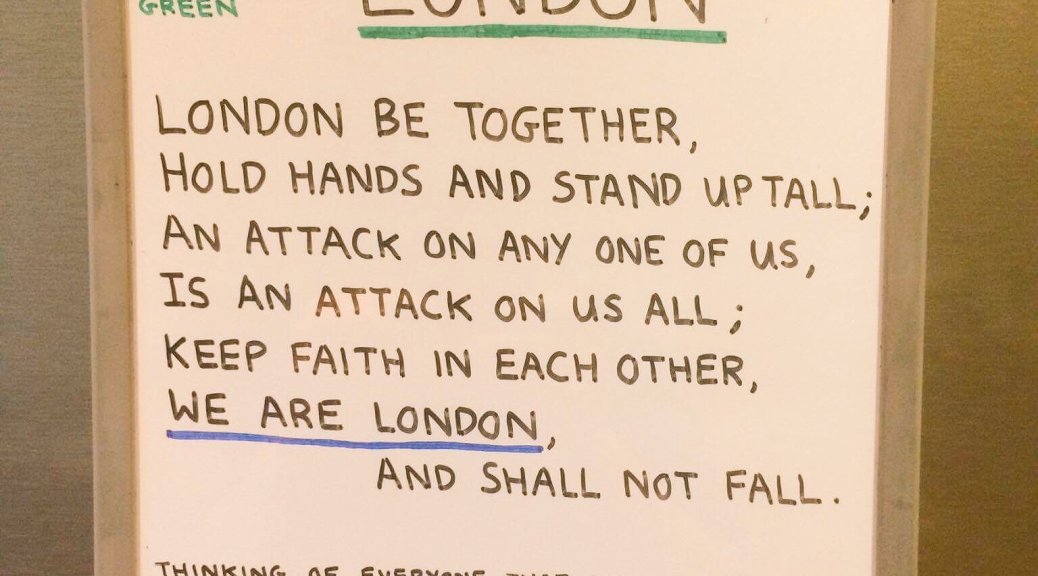 GREEN
LONDON
LONDON BE TOGETHER,
HOLD HANDS AND STAND UP TALL;
AN ATTACK ON ANY ONE OF US,
IS AN ATTACK ON US ALL;
KEEP FAITH IN EACH OTHER,
WE ARE LONDON,
AND SHALL NOT FALL.
THINKING OF EVERYONE